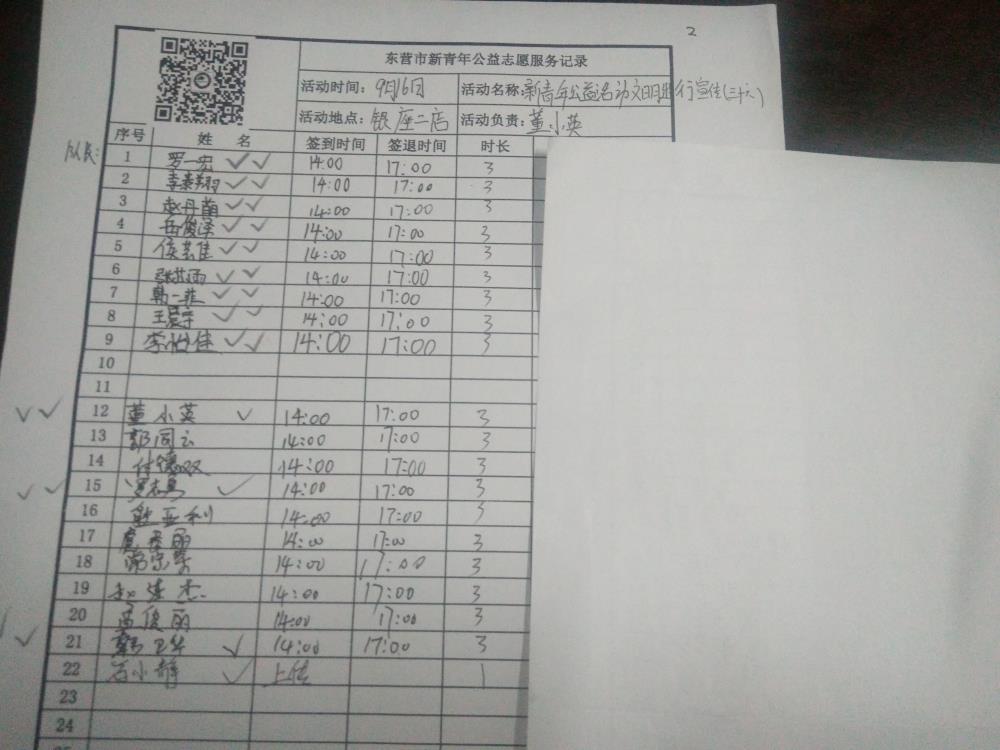 2
东营市新青年公益志愿服务记录
活动时间：9月16日 活动名称：新青年公益活动文明出行宣传(三十六)
活动地点：银座二店 活动负责：董小英
序号 姓名 签到时间 签退时间 时长
队长：1 罗一宏 ✓✓ 14:00 17:00 3
2 李泰翔 ✓✓ 14:00 17:00 3
3 赵丹萌 ✓✓ 14:00 17:00 3
4 岳俊泽 ✓✓ 14:00 17:00 3
5 ✓✓ 14:00 17:00 3
6 ✓✓ 14:00 17:00 3
7 韩一菲 ✓✓ 14:00 17:00 3
8 王晨宇 ✓✓ 14:00 17:00 3
9 李怡佳 ✓✓ 14:00 17:00 3
10
11
✓✓ 12 董小英 ✓ 14:00 17:00 3
13 郭同云 14:00 17:00 3
14 14:00 17:00 3
✓✓ 15 ✓ 14:00 17:00 3
16 14:00 17:00 3
17 14:00 17:00 3
18 14:00 17:00 3
19 14:00 17:00 3
20 14:00 17:00 3
✓ 21 韩卫华 ✓ 14:00 17:00 3
22 石小静 ✓ 上传 1
23
24